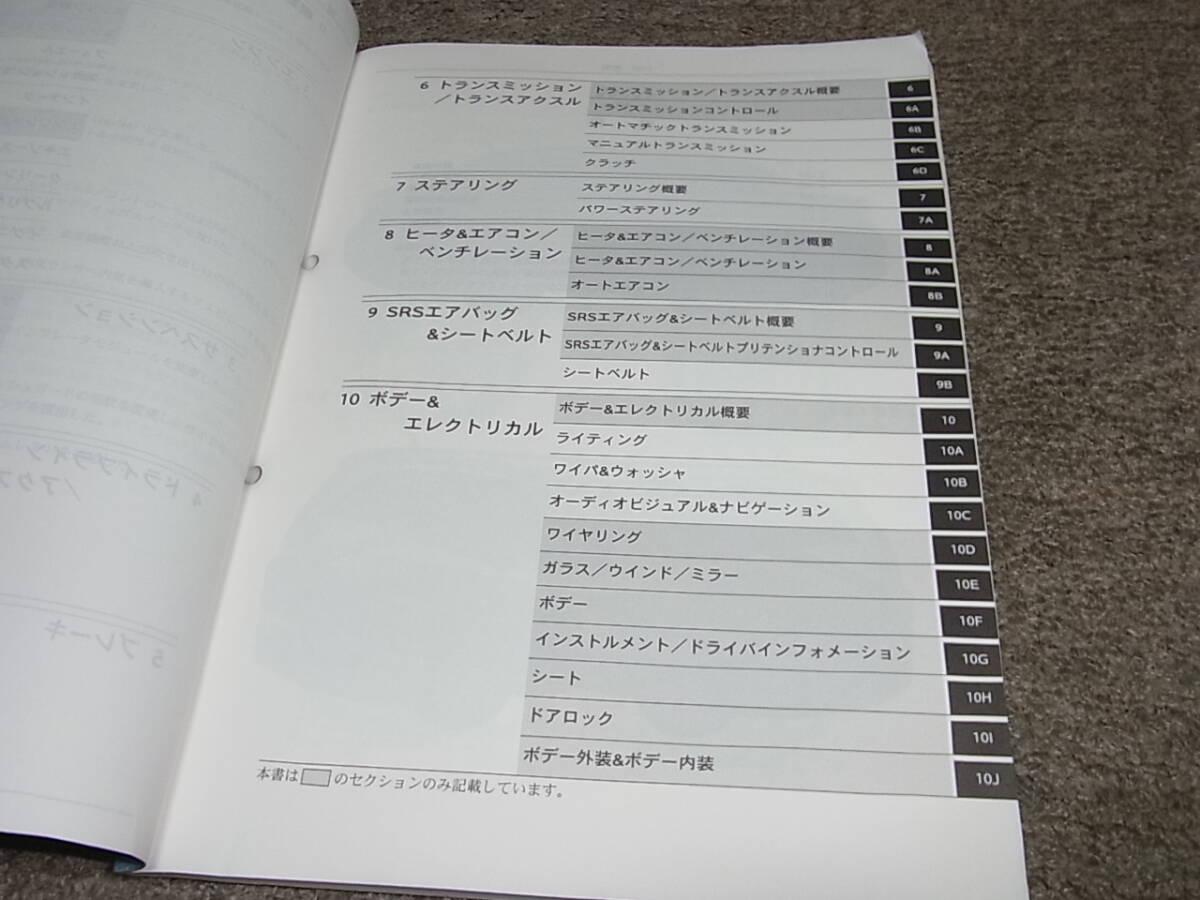 6 トランスミッション
／トランスアクスル
トランスミッション／トランスアクスル概要 6
トランスミッションコントロール 6A
オートマチックトランスミッション 6B
マニュアルトランスミッション 6C
クラッチ 6D
7 ステアリング
ステアリング概要 7
パワーステアリング 7A
8 ヒータ&エアコン／
ベンチレーション
ヒータ&エアコン／ベンチレーション概要 8
ヒータ&エアコン／ベンチレーション 8A
オートエアコン 8B
9 SRSエアバッグ
&シートベルト
SRSエアバッグ&シートベルト概要 9
SRSエアバッグ&シートベルトプリテンショナコントロール 9A
シートベルト 9B
10 ボデー&
エレクトリカル
ボデー&エレクトリカル概要 10
ライティング 10A
ワイパ&ウォッシャ 10B
オーディオビジュアル&ナビゲーション 10C
ワイヤリング 10D
ガラス／ウインド／ミラー 10E
ボデー 10F
インストルメント／ドライバインフォメーション 10G
シート 10H
ドアロック 10I
ボデー外装&ボデー内装 10J
本書は のセクションのみ記載しています。